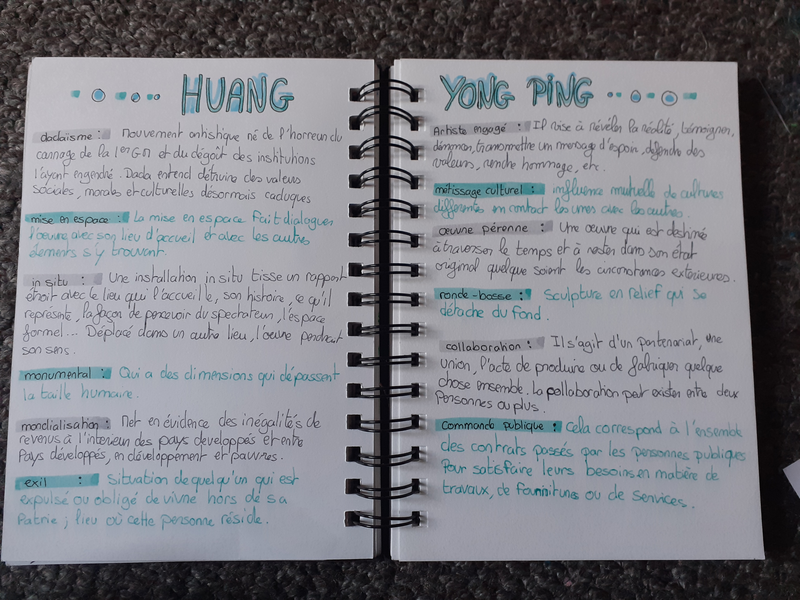 HUANG
dadaïsme : Mouvement artistique né de l'horreur du
carnage de la 1er GM et du dégoût des institutions
l'ayant engendré. Dada entend détruire des valeurs
sociales, morales et culturelles désormais caduques
mise en espace : La mise en espace fait dialoguer
l'œuvre avec son lieu d'accueil et avec les autres
éléments s'y trouvant.
in situ : Une installation in situ tisse un rapport
étroit avec le lieu qui l'accueille, son histoire, ce qu'il
représente, la façon de percevoir du spectateur, l'espace
formel... Déplacé dans un autre lieu, l'œuvre perdrait
son sens.
monumental : Qui a des dimensions qui dépassent
la taille humaine.
mondialisation : Met en évidence des inégalités de
revenus à l'intérieur des pays développés et entre
pays développés, en développement et pauvres.
exil : Situation de quelqu'un qui est
expulsé ou obligé de vivre hors de sa
patrie ; lieu où cette personne réside.
YONG PING
Artiste engagé : Il vise à révéler la réalité, témoigner,
dénoncer, transmettre un message d'espoir, défendre des
valeurs, rendre hommage, etc.
métissage culturel : influence mutuelle de cultures
différentes en contact les unes avec les autres.
œuvre pérenne : Une œuvre qui est destiné
à traverser le temps et à rester dans son état
original quelque soient les circonstances extérieures.
ronde-bosse : Sculpture en relief qui se
détache du fond.
collaboration : Il s'agit d'un partenariat, une
union, l'acte de produire ou de fabriquer quelque
chose ensemble. La collaboration peut exister entre deux
personnes ou plus.
commande publique : Cela correspond à l'ensemble
des contrats passés par les personnes publiques
pour satisfaire leurs besoins en matière de
travaux, de fournitures ou de services.